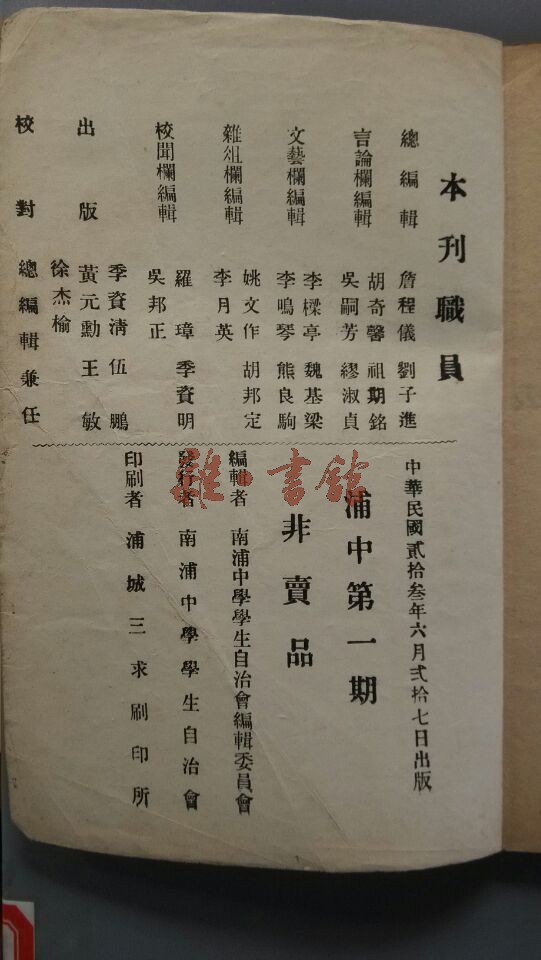 本刊職員
總編輯 詹程儀 劉子進
言論欄編輯 胡奇馨 祖期銘
吳嗣芳 繆淑貞
文藝欄編輯 李櫟亭 魏基梁
李鳴琴 熊良駒
雜俎欄編輯 姚文作 胡邦定
李月英
校聞欄編輯 羅璋 季資明
吳邦正
出版 季資清 伍鵬
黃元勳 王敏
徐杰榆
校對 總編輯兼任
中華民國貳拾叁年六月弍拾七日出版
浦中第一期
非賣品
編輯者 南浦中學學生自治會編輯委員會
發行者 南浦中學學生自治會
印刷者 浦城三求刷印所